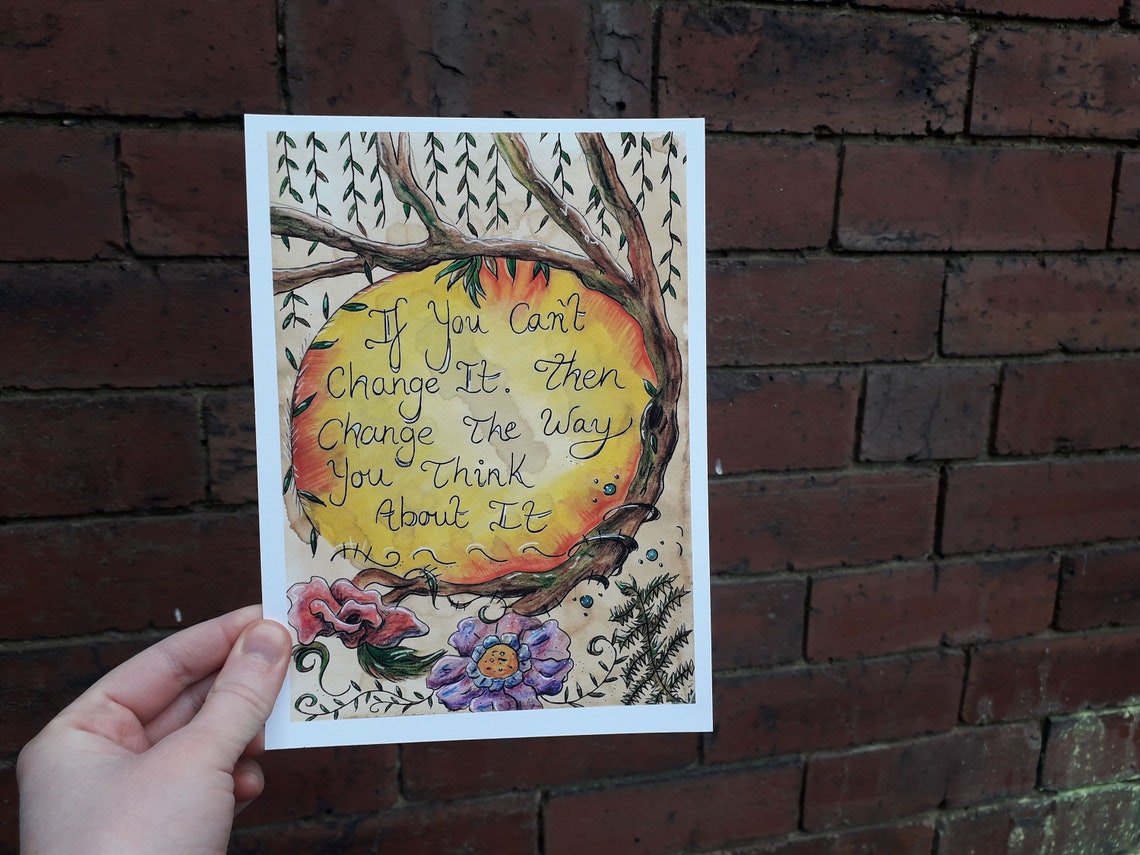 If You Can't
Change It. Then
Change The Way
You Think
About It